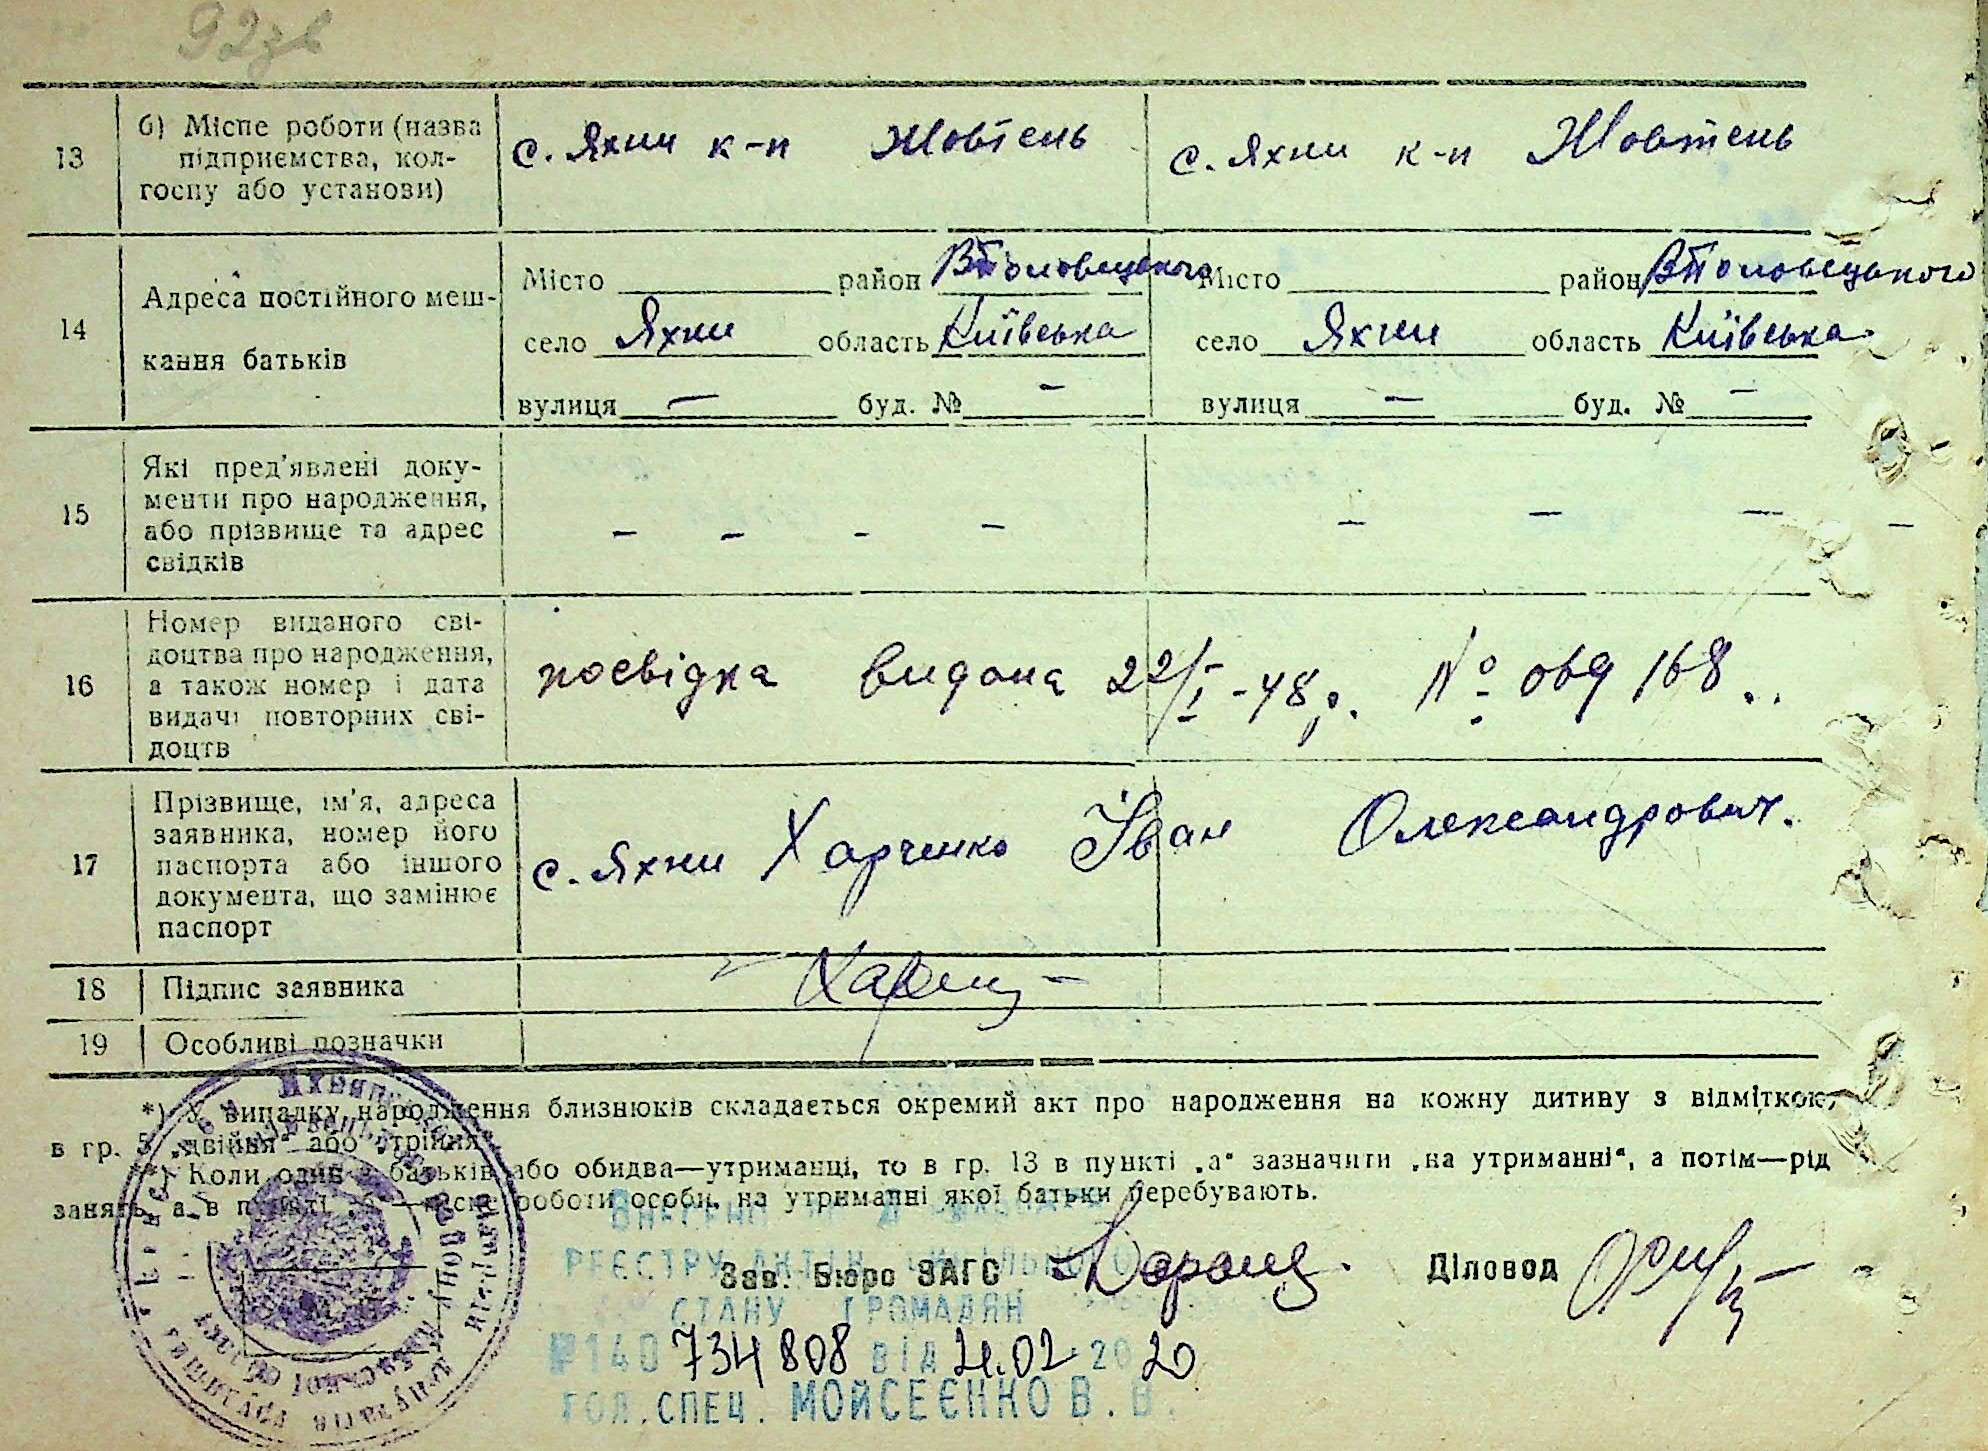 92зв
13 б) Місце роботи (назва підприємства, кол-
госпу або установи)
с. Яхни к-п Жовтень
с. Яхни к-п Жовтень
14 Адреса постійного меш-
кання батьків
Місто район
село Яхни область Київська
вулиця — буд. № —
Місто район
село Яхни область Київська
вулиця — буд. № —
15 Які пред'явлені доку-
менти про народження,
або прізвище та адрес
свідків
– – – – – – – –
16 Номер виданого сві-
доцтва про народження,
а також номер і дата
видачі повторних сві-
доцтв
посвідка видана 22/I-48р. № 069168..
17 Прізвище, ім'я, адреса
заявника, номер його
паспорта або іншого
документа, що замінює
паспорт
с. Яхни Харченко Іван Олександрович.
18 Підпис заявника
19 Особливі позначки
*) У випадку народження близнюків складається окремий акт про народження на кожну дитину з відміткою,
в гр. 5 „двійня" або „трійня".
**) Коли один з батьків або обидва—утриманці, то в гр. 13 в пункті „а" зазначити „на утриманні", а потім—рід
занять, а в пункті „б"—місце роботи особи, на утриманні якої батьки перебувають.
РЕЄСТРУ АКТІВ ЦИВІЛЬНОГО
СТАНУ ГРОМАДЯН
Зав. Бюро ЗАГС
Діловод
№140 734 808 від 21.02.2020
ГОЛ. СПЕЦ. МОЙСЕЄНКО В. В.